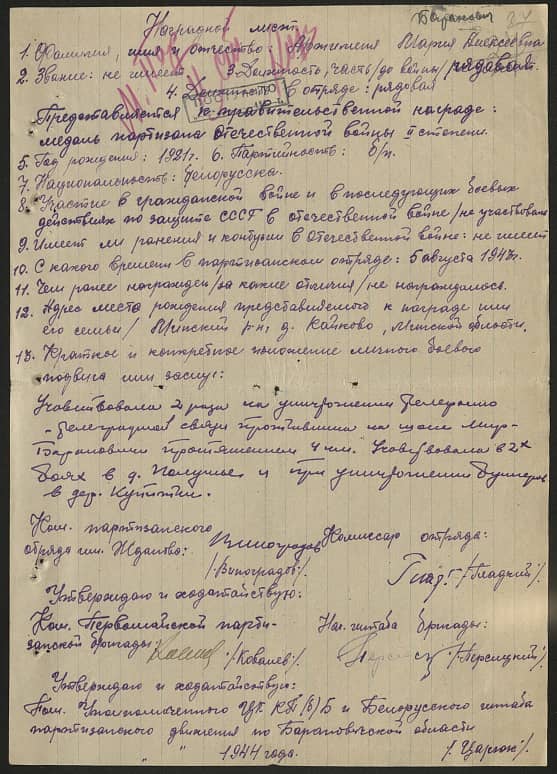 Баранович 34
Наградной лист
1. Фамилия, имя и отчество: Мария Алексеевна
2. Звание: не имеет 3. Должность, часть /до войны/ рядовая.
4. Должность в отряде: рядовая
Представляется к правительственной награде:
медаль партизана Отечественной войны II степени.
5. Год рождения: 1921г. 6. Партийность: б/п.
7. Национальность: Белорусска.
8. Участие в гражданской войне и в последующих боевых
действиях по защите СССР в отечественной войне /не участвовала
9. Имеет ли ранения и контузии в Отечественной войне: не имеет
10. С какого времени в партизанском отряде: 5 августа 1943г.
11. Чем ранее награжден /за какие отличия/ не награждалась.
12. Адрес места рождения представляемого к награде или
его семьи / Минский р-н, д. Кайково, Минской области.
13. Краткое и конкретное изложение личного боевого
подвига или заслуг:
Учавствовала 2 раза на уничтожении телефонно
-телеграфной связи противника на шоссе Мир-
Барановичи протяжением 4 км. Учавствовала в 2х
боях в д. и при уничтожении бункеров
в дер.
Ком. партизанского
отряда им. Жданова: Виноградов Комиссар отряда:
/Виноградов/. /Гладкий/.
Утверждаю и ходатайствую:
Ком. Первомайской парти- Нач. штаба бригады:
занской бригады: /Ковалев/. /Персицкий/.
Утверждаю и ходатайствую:
Пом. Уполномоченного ЦК КП(б)Б и Белорусского штаба
партизанского движения по Барановичской области
" " 1944 года. /. Царюк/.